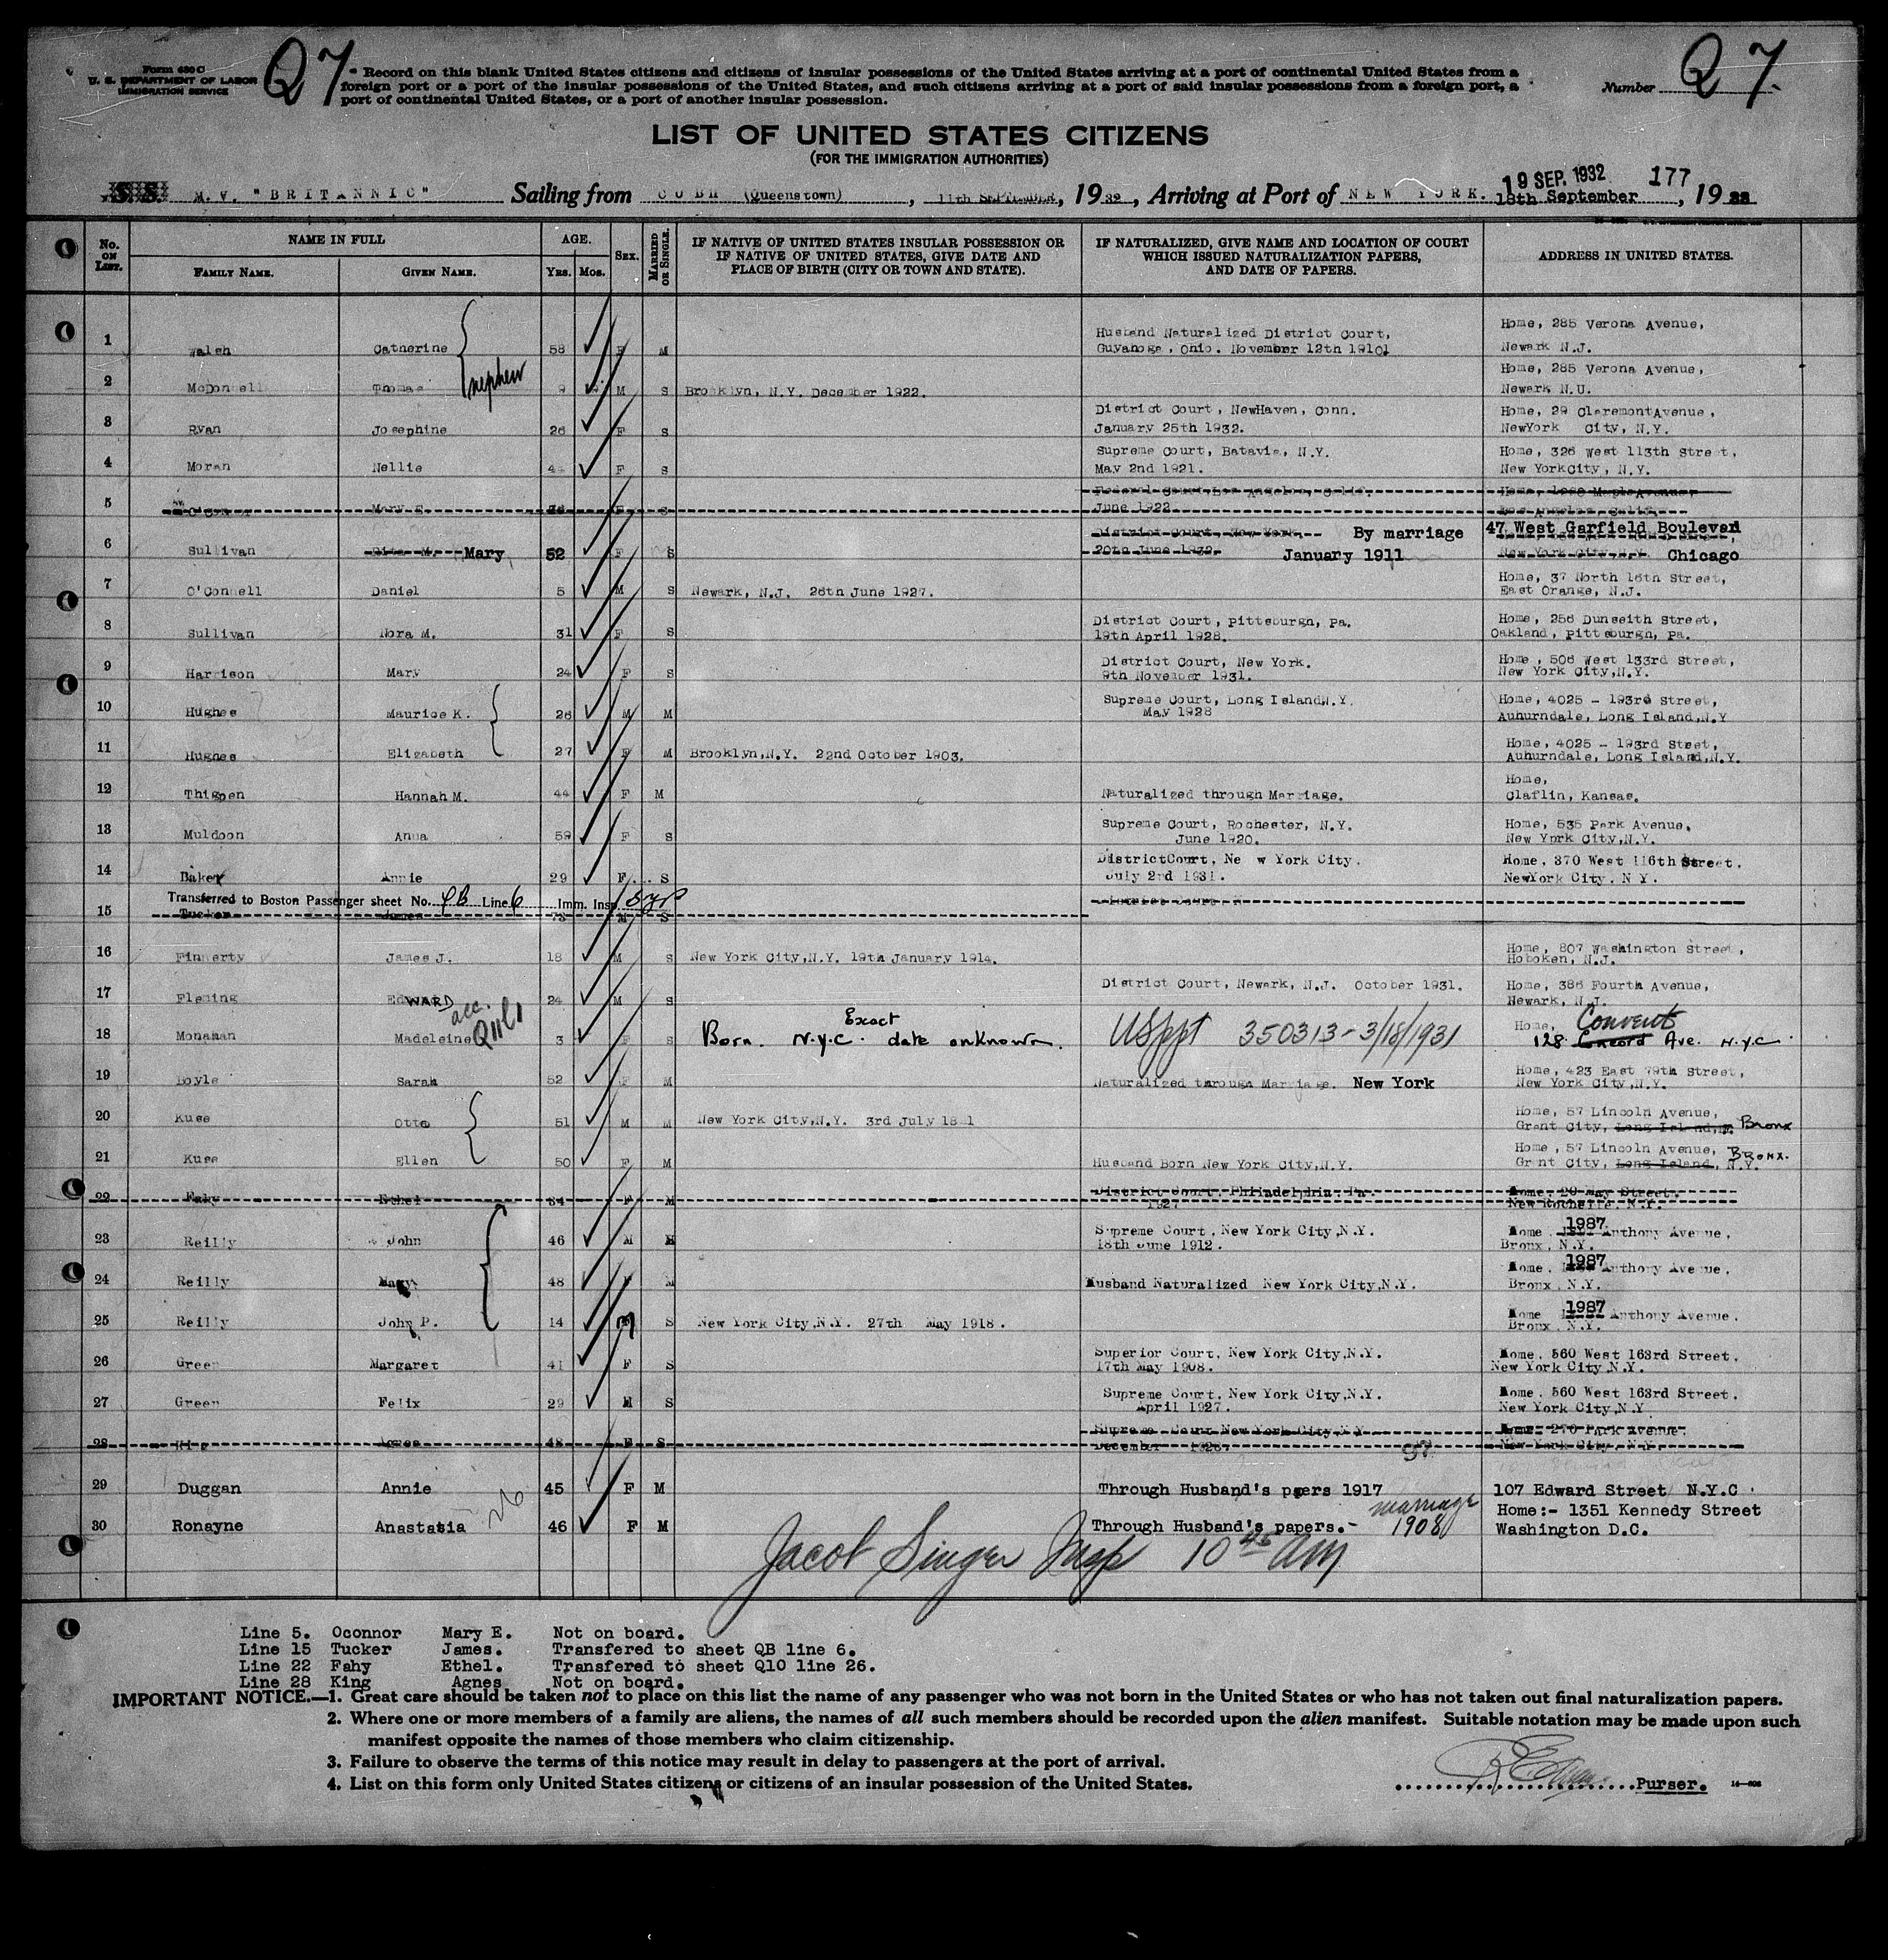 Form 630 C
U. S. DEPARTMENT OF LABOR
IMMIGRATION SERVICE
Q7
* Record on this blank United States citizens and citizens of insular possessions of the United States arriving at a port of continental United States from a
foreign port or a port of the insular possessions of the United States, and such citizens arriving at a port of said insular possessions from a foreign port, a
port of continental United States, or a port of another insular possession.
Number Q7.
LIST OF UNITED STATES CITIZENS
(FOR THE IMMIGRATION AUTHORITIES)
S. S. M.V. "BRITANNIC" Sailing from COBH (Queenstown), 11th SEPTEMBER, 1932, Arriving at Port of NEW YORK. 19 SEP. 1932 18th September 177, 19
No. ON LIST. NAME IN FULL AGE. SEX. MARRIED OR SINGLE. IF NATIVE OF UNITED STATES INSULAR POSSESSION OR IF NATIVE OF UNITED STATES, GIVE DATE AND PLACE OF BIRTH (CITY OR TOWN AND STATE). IF NATURALIZED, GIVE NAME AND LOCATION OF COURT WHICH ISSUED NATURALIZATION PAPERS, AND DATE OF PAPERS. ADDRESS IN UNITED STATES.
FAMILY NAME. GIVEN NAME. YRS. MOS.
1 Walsh Catherine 58 F M Husband Naturalized District Court, Guyahoga, Ohio. November 12th 1910 Home, 285 Verona Avenue, Newark N.J.
nephew
2 McDonnell Thomas 9 M S Brooklyn, N.Y. December 1922. Home, 285 Verona Avenue, Newark N.U.
3 Ryan Josephine 26 F S District Court, NewHaven, Conn. January 25th 1932. Home, 29 ClaremontAvenue, NewYork City, N.Y.
4 Moran Nellie F S Supreme Court, Batavia, N.Y. May 2nd 1921. Home, 326 West 113th Street, New YorkCity, N.Y.
5 Mary E. F S Federal Court, Los Angeles, Calif. June 1922. Home, Maple Avenue, Los Angeles, Calif.
6 Sullivan Mary 52 F S District Court, New York. 20th June 1932. By marriage January 1911 47 West Garfield Boulevard Chicago
7 O'Connell Daniel 5 M S Newark, N.J. 26th June 1927. Home, 37 North 16th Street, East Orange, N.J.
8 Sullivan Nora M. 31 F S District Court, Pittsburgh, Pa. 19th April 1928. Home, 256 Dunseith Street, Oakland, Pittsburgh, Pa.
9 Harrison Mary 24 F S District Court, New York. 9th November 1931. Home, 506 West 133rd Street, New York City, N.Y.
10 Hughes Maurice K. 26 M M Supreme Court, Long Island N.Y. May 1928 Home, 4025 - 193rd Street, Auhurndale, Long Island, N.Y
11 Hughes Elizabeth 27 F M Brooklyn, N.Y. 22nd October 1903. Home, 4025 - 193rd Street, Auhurndale, Long Island, N.Y.
12 Thigpen Hannah M. 44 F M Naturalized through Marriage. Home, Claflin, Kansas.
13 Muldoon Anna 59 F S Supreme Court, Rochester, N.Y. June 1920. Home, 535 Park Avenue, New York City, N.Y.
14 Baker Annie 29 F S DistrictCourt, New York City. July 2nd 1931. Home, 370 West 116th Street. NewYork City. N Y.
Transferred to Boston Passenger sheet No. QB Line 6 Imm. Insp.
15 Tucker James 73 M S District Court,
16 Finnerty James J. 18 M S New York City, N.Y. 19th January 1914. Home, 807 Washington Street, Hoboken, N.J.
17 Fleming EdWARD 24 M S District Court, Newark, N.J. October 1931. Home, 386 Fourth Avenue, Newark, N.J.
18 Monahan Madeleine acc. 3 F S Born. N.Y.C. Exact date unknown. USppt 350313 - 3/18/1931 Home, Convent 128 Concord Ave. N.Y.C.
19 Boyle Sarah 52 F M Naturalized through Marriage. New York Home, 423 East 79th Street, New York City, N.Y.
20 Kuse Otto 51 M M New York City, N.Y. 3rd July 18 1 Home, 57 Lincoln Avenue, Grant City, Long Island, Bronx
21 Kuse Ellen 50 F M Husband Born New York City, N.Y. Home, 57 Lincoln Avenue, Grant City, Long Island, N.Y. BRONX.
22 Fahy Ethel 34 F M District Court, Philadelphia, Pa. 1927 Home, 20 May Street. New Rochelle, N.Y.
23 Reilly John 46 M M Supreme Court, New York City, N.Y. 18th June 1912. Home, 1987 Anthony Avenue, Bronx, N.Y.
24 Reilly Mary 48 F M Husband Naturalized New York City, N.Y. Home, 1987 Anthony Avenue, Bronx, N.Y.
25 Reilly John P. 14 M S New York City, N.Y. 27th May 1918. Home 1987 Anthony Avenue. Bronx, N.Y.
26 Green Margaret 41 F S Superior Court, New York City, N.Y. 17th May 1908. Home, 560 West 163rd Street. New York City, N.Y.
27 Green Felix 29 M S Supreme Court, New York City, N.Y. April 1927. Home, 560 West 163rd Street. New York City, N.Y
28 King Agnes 48 F S Supreme Court New York City, N.Y. December 1926. Home: 270 Park Avenue. New York City, N.Y.
29 Duggan Annie 45 F M Through Husband's ppers 1917 107 Edward Street N.Y.C.
30 Ronayne Anastasia 46 F M Through Husband's papers.- marriage 1908 Home:- 1351 Kennedy Street Washington D.C.
Jacob Singer Insp 10 45 AM
Line 5. Oconnor Mary E. Not on board.
Line 15 Tucker James. Transfered to sheet QB line 6.
Line 22 Fahy Ethel. Transfered to sheet Q10 line 26.
Line 28 King Agnes Not on board.
IMPORTANT NOTICE.—1. Great care should be taken not to place on this list the name of any passenger who was not born in the United States or who has not taken out final naturalization papers.
2. Where one or more members of a family are aliens, the names of all such members should be recorded upon the alien manifest. Suitable notation may be made upon such
manifest opposite the names of those members who claim citizenship.
3. Failure to observe the terms of this notice may result in delay to passengers at the port of arrival.
4. List on this form only United States citizens or citizens of an insular possession of the United States.
Purser.